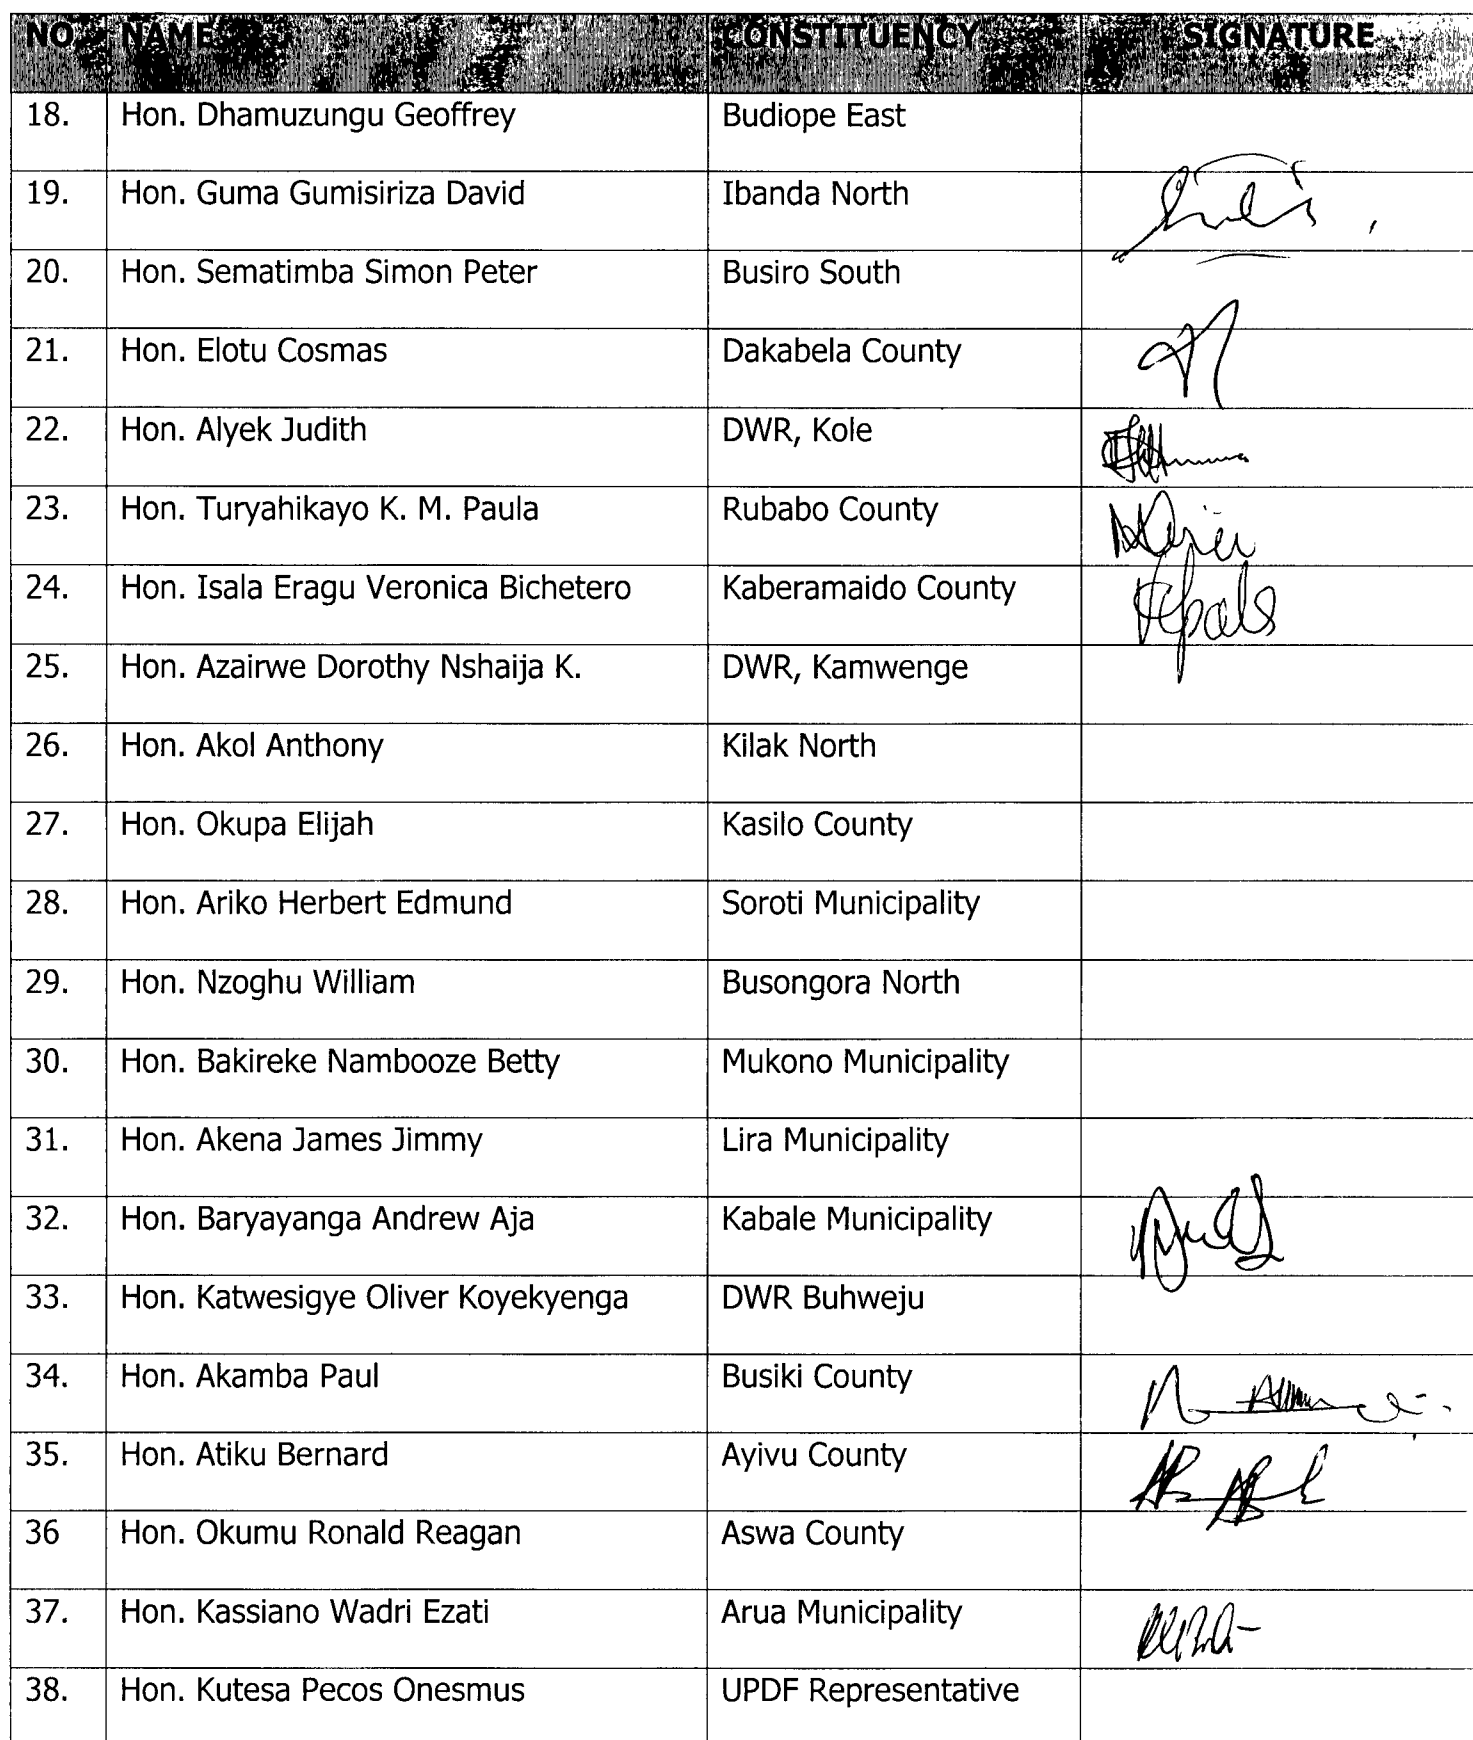 NO. NAME CONSTITUENCY SIGNATURE
18. Hon. Dhamuzungu Geoffrey Budiope East
19. Hon. Guma Gumisiriza David Ibanda North
20. Hon. Sematimba Simon Peter Busiro South
21. Hon. Elotu Cosmas Dakabela County
22. Hon. Alyek Judith DWR, Kole
23. Hon. Turyahikayo K. M. Paula Rubabo County
24. Hon. Isala Eragu Veronica Bichetero Kaberamaido County
25. Hon. Azairwe Dorothy Nshaija K. DWR, Kamwenge
26. Hon. Akol Anthony Kilak North
27. Hon. Okupa Elijah Kasilo County
28. Hon. Ariko Herbert Edmund Soroti Municipality
29. Hon. Nzoghu William Busongora North
30. Hon. Bakireke Nambooze Betty Mukono Municipality
31. Hon. Akena James Jimmy Lira Municipality
32. Hon. Baryayanga Andrew Aja Kabale Municipality
33. Hon. Katwesigye Oliver Koyekyenga DWR Buhweju
34. Hon. Akamba Paul Busiki County
35. Hon. Atiku Bernard Ayivu County
36 Hon. Okumu Ronald Reagan Aswa County
37. Hon. Kassiano Wadri Ezati Arua Municipality
38. Hon. Kutesa Pecos Onesmus UPDF Representative